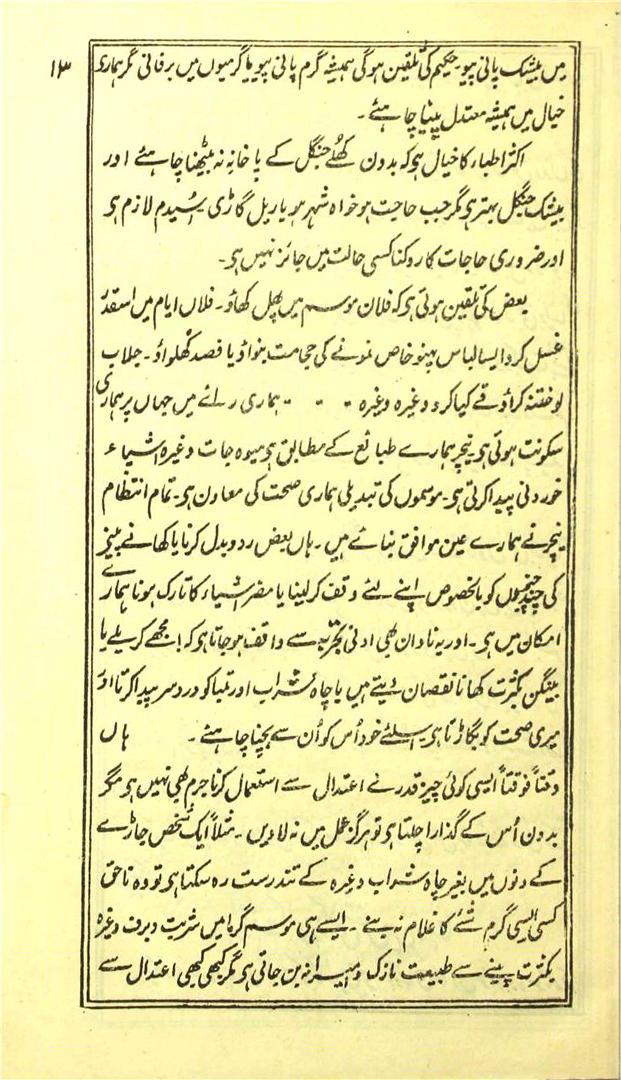 ۱۳
میں بیشک پانی پیو۔ حکیم کی تلقین ہوگی ہمیشہ گرم پانی پیو یا گرمیوں میں برفاتی مگر ہماری
خیال میں ہمیشہ معتدل پینا چاہئے۔
اکثر اطباء کا خیال ہی کہ بدون کھلے جنگل کے پاخانہ نہ بیٹھنا چاہئے اور
بیشک جنگل بہتر ہی مگر جب حاجت ہو خواہ شہر ہو یا ریل گاڑی اُسیدم لازم ہی
اور ضروری حاجات کا روکنا کسی حالت میں جائز نہیں ہی۔
بعض کی تلقین ہوتی ہی کہ فلان موسم میں پھل کھاؤ۔ فلاں ایام میں اسقدر
غسل کرو ایسا لباس پہنو خاص نمونے کی حجامت بنواؤ یا فصد کھلواؤ۔ جلاب
لو حقنہ کراؤ قے کیا کرو وغیرہ وغیرہ ۔ ۔ ۔ ہماری رائے میں جہاں پر ہماری
سکونت ہوتی ہی۔ نیچر ہمارے طبائع کے مطابق ہی میوہ جات وغیرہ اشیاء
خوردنی پیدا کرتی ہی۔ موسموں کی تبدیلی ہماری صحت کی معاون ہی۔ تمام انتظام
نیچر نے ہمارے عین موافق بنائے ہیں۔ ہاں بعض ردوبدل کرنا یا کھانے پینے
کی چند چیزوں کو بالخصوص اپنے لئے وقف کر لینا یا مضر اشیاء کا تارک ہونا ہمارے
امکان میں ہی۔ اور یہ نادان بھی ادنی تجربہ سے واقف ہو جاتا ہی کہ مجھے کریلے یا
بینگن بکثرت کھانا نقصان دیتے ہیں یا چاہ شراب اور تمباکو درد سر پیدا کرتا اور
میری صحت کو بگاڑتا ہی۔ اسلئے خود اُس کو اُن سے بچنا چاہئے۔ ہاں
وقتاً فوقتاً ایسی کوئی چیز قدرے اعتدال سے استعمال کرنا جرم بھی نہیں ہی مگر
بدون اُس کے گذارا چلتا ہی تو ہرگز عمل میں نہ لادیں۔ مثلاً ایک شخص جاڑے
کے دنوں میں بغیر چاہ شراب وغیرہ کے تندرست رہ سکتا ہی تو وہ ناحق
کسی ایسی گرم شئے کا غلام نہ بنے۔ ایسے ہی موسم گرما میں شربت و برف وغیرہ
بکثرت پینے سے طبیعت نازک و امیرانہ بن جاتی ہی مگر کبھی کبھی اعتدال سے